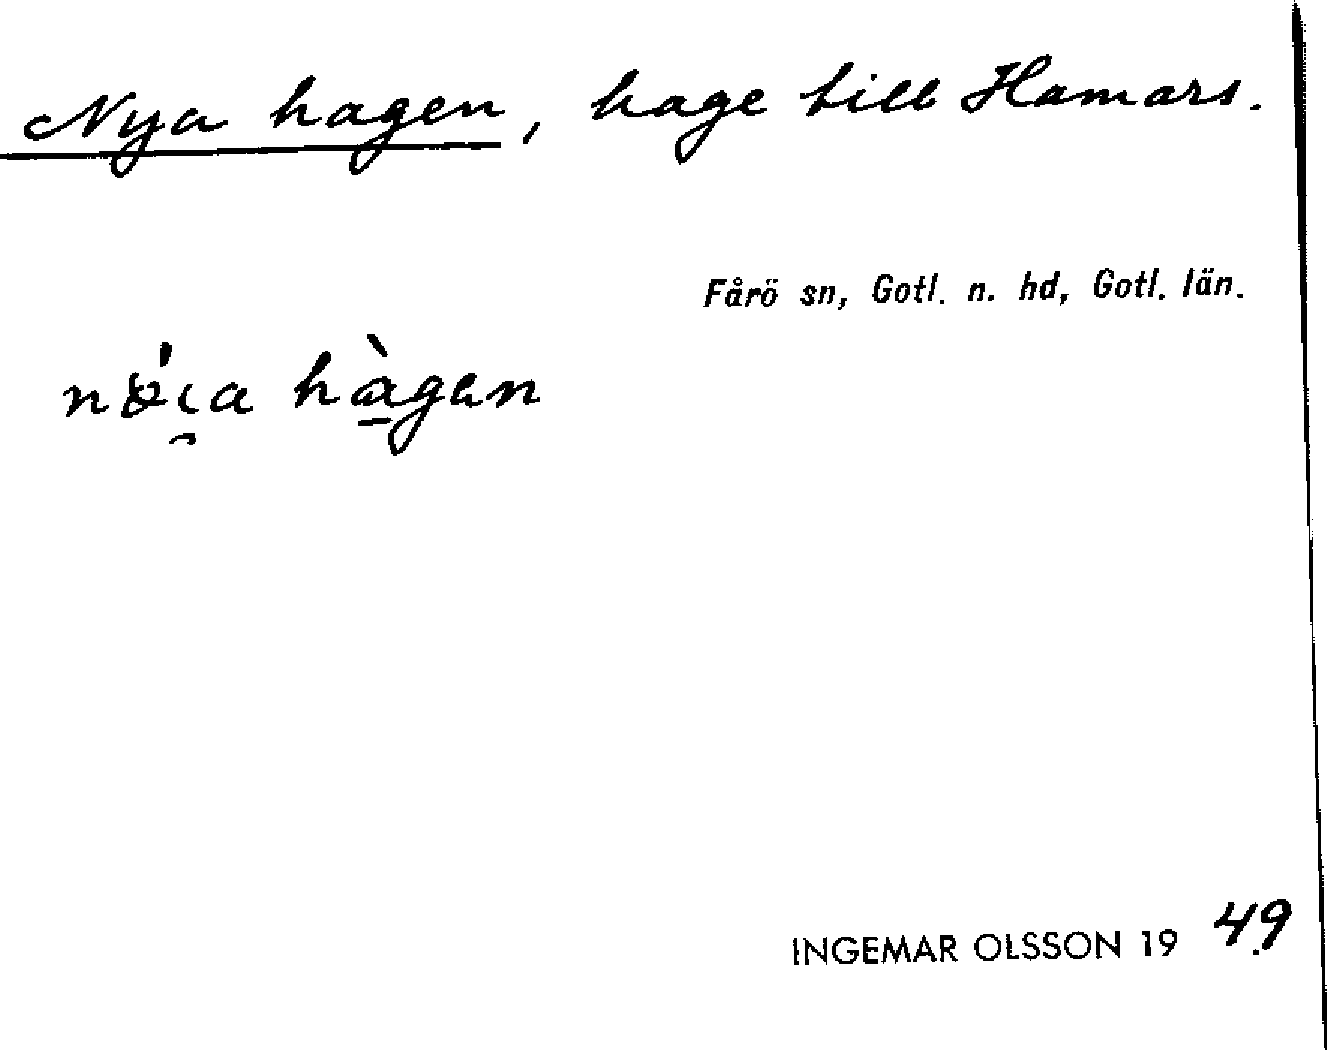 Nya hagen, hage till Hamars.
Fårö sn, Gotl. n. hd, Gotl. län.
hàgen
INGEMAR OLSSON 1949.